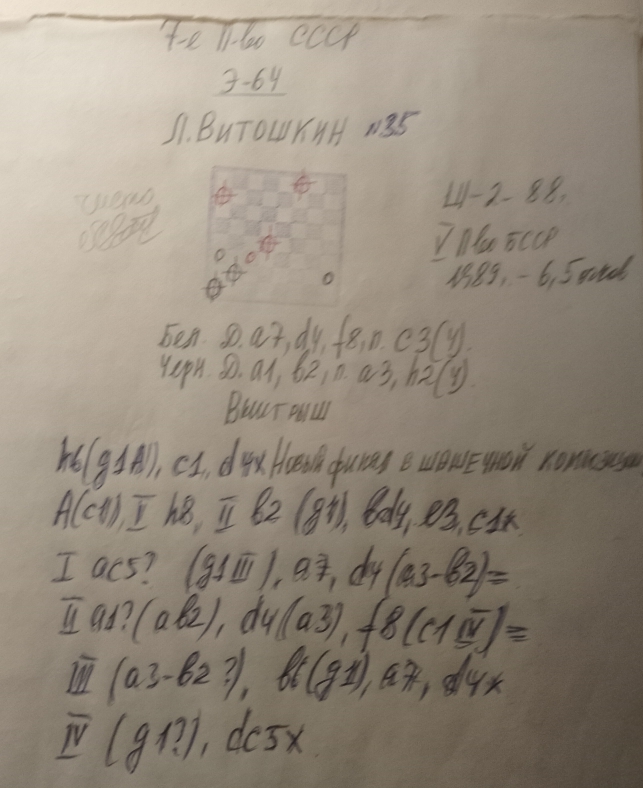 7-е П-во СССР
Э-64
Л. ВИТОШКИН №35
чисто
Ш-2-88.
V П-во БССР
1989. - 6,5 очков
Бел. Д. a7, d4, f8, п. c3(4).
Черн. Д. a1, b2, п. a3, h2(4).
ВЫИГРЫШ
h6(g1A), c1, d4x Новый финал в шашечной композиции
A(c1), I h8, II b2 (g1), bd4, e3, c1x
I ac5? (g1 III), a7, d4 (a3-b2)=
II a1? (ab2), d4 (a3), f8 (c1 IV)=
III (a3-b2?), (g1), a7, d4x
IV (g1?), dc5x